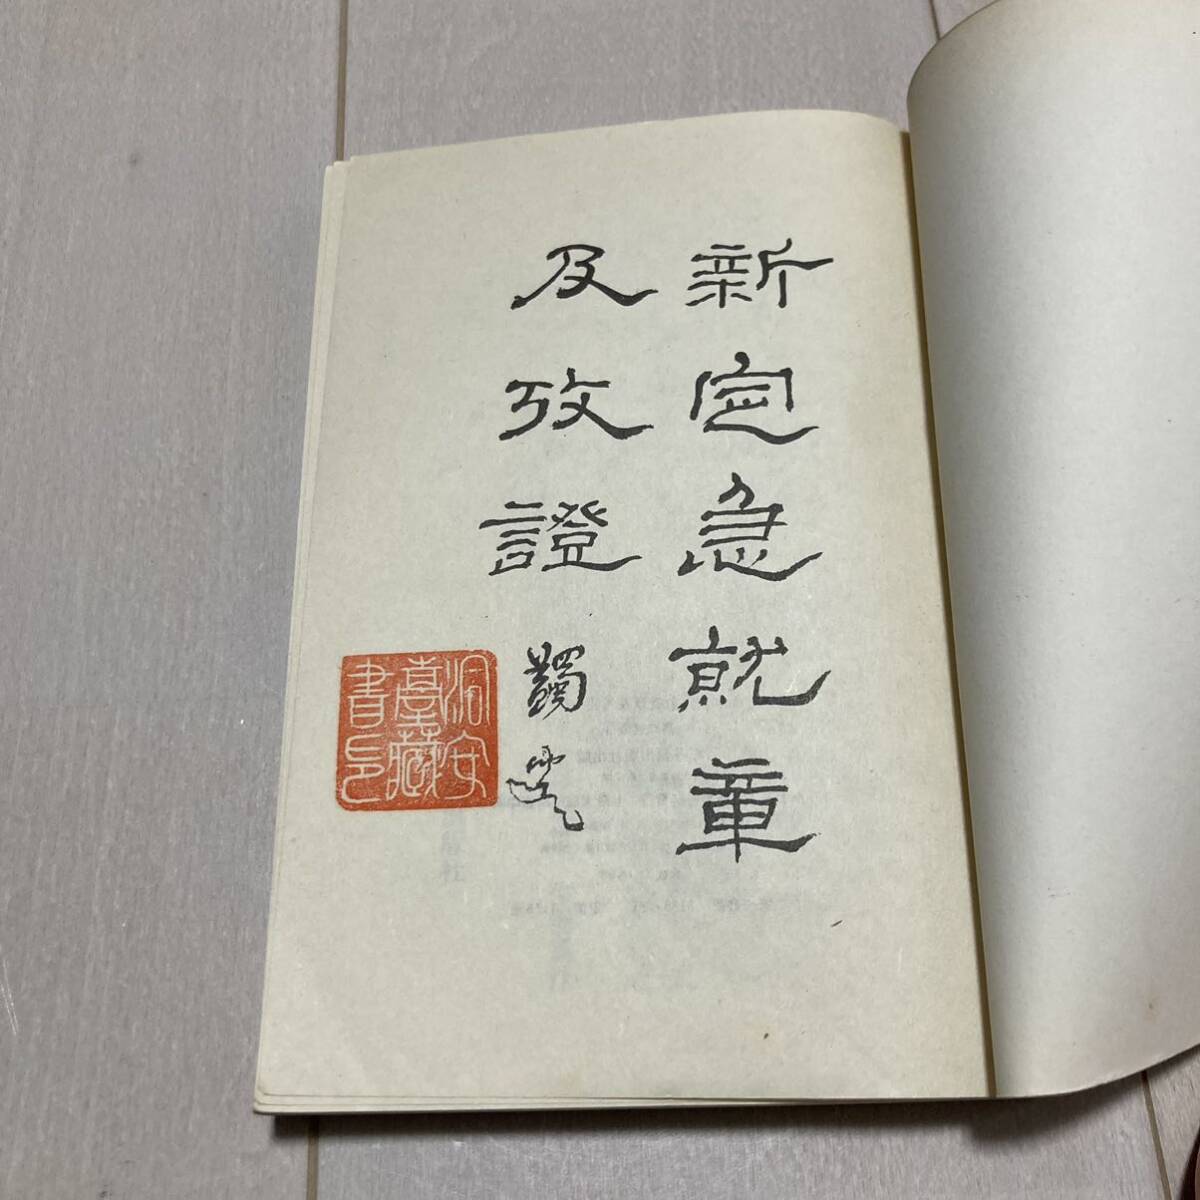 新定急就章
及攷證
洞安
臺藏
書印